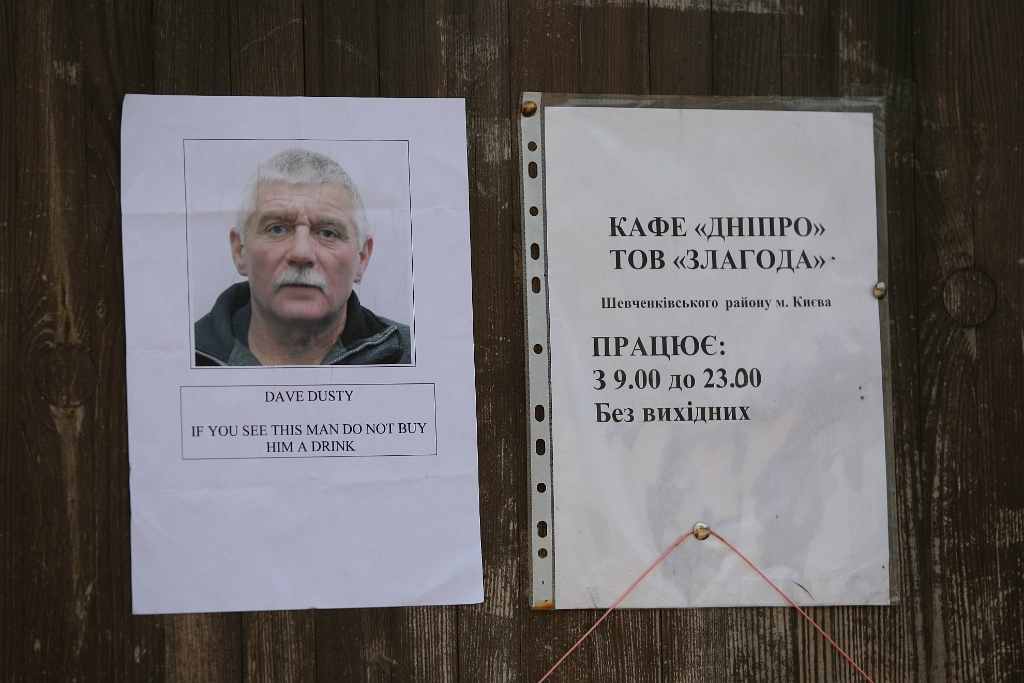 DAVE DUSTY
IF YOU SEE THIS MAN DO NOT BUY
HIM A DRINK
КАФЕ «ДНІПРО»
ТОВ «ЗЛАГОДА»
Шевченківського району м. Києва
ПРАЦЮЄ:
З 9.00 до 23.00
Без вихідних